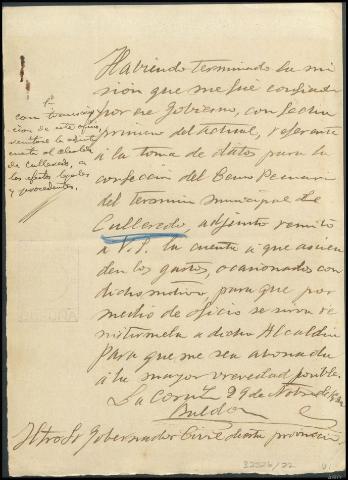 Habiendo terminado la mi
sión que me fué confiada
por ese Gobierno, con fecha
primero del actual, referente
á la toma de datos para la
confección del Censo Pecuario
del termino municipal de
Culleredo, adjunto remito
a V.S. la cuenta a que ascien
den los gastos, ocasionados con
dicho motivo para que por
medio de oficio se sirva re
mitirmela a dicha Alcaldia
para que me sea abonada
á la mayor vrevedad posible.
La Coruña 29 de Nobre de
Iltro Sr Gobernador Civil de esta provincia
con transcrip
ción de este oficio,
remitase la adjunta
cuenta al alcalde
de Culleredo, a
los efectos legales
y procedentes.
32526/22